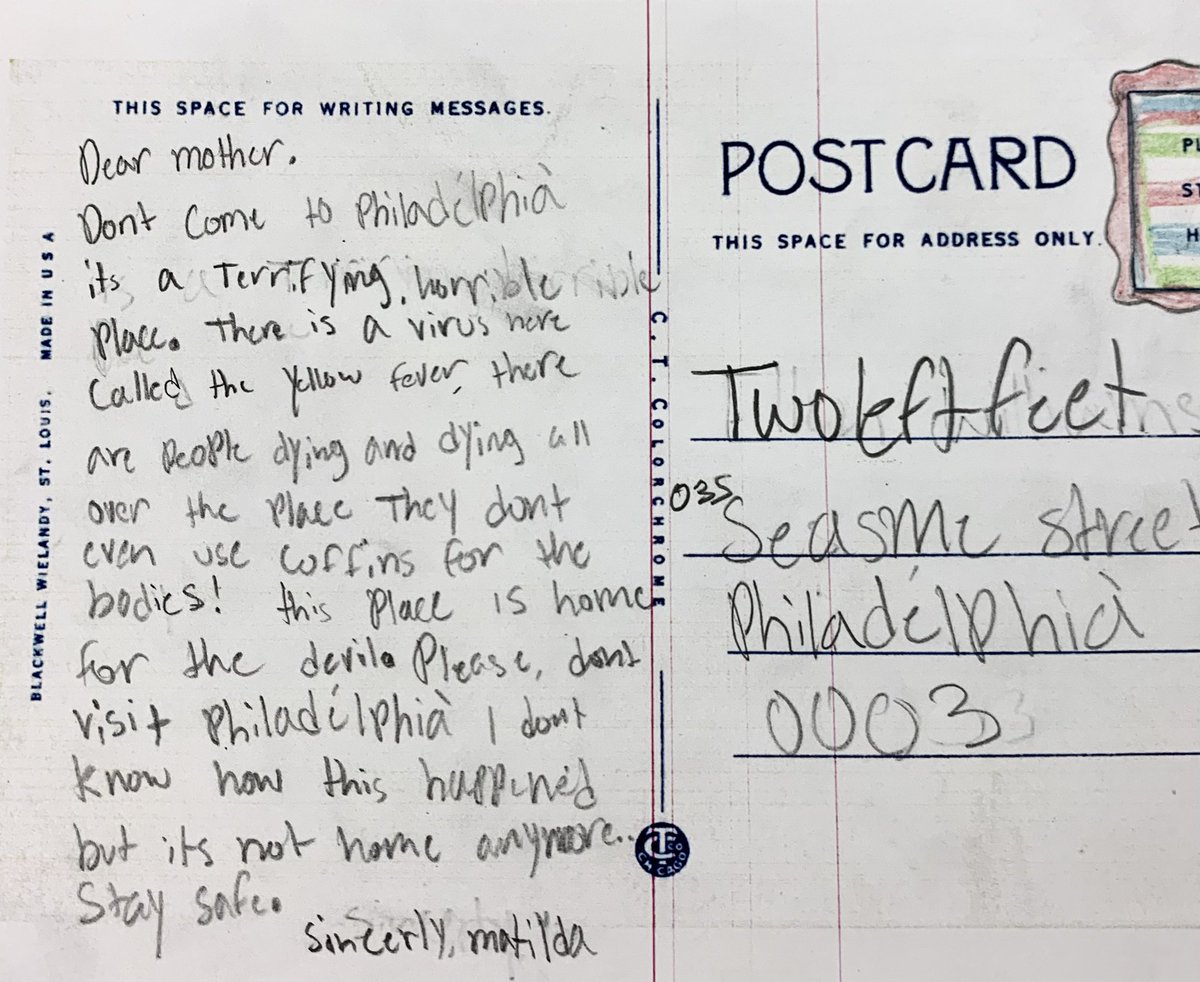 THIS SPACE FOR WRITING MESSAGES.
Dear mother.
Dont Come to Philadélphià
its a Terrifying, horrible
Place. There is a virus here
Called the Yellow fever, there
are people dying and dying all
over the place They dont
even use coffins for the
bodies! this Place is home
for the devil. Please, dont
visit Philadélphià I dont
know how this happened
but its not home anymore..
Stay safe.
sincerly, matilda
BLACKWELL WIELANDY, ST. LOUIS. MADE IN USA
C. T. COLORCHROME
CT
CHICAGO
POST CARD
THIS SPACE FOR ADDRESS ONLY.
PL
ST
H
Two left feet
035 Seasme street
Philadélphià
0003